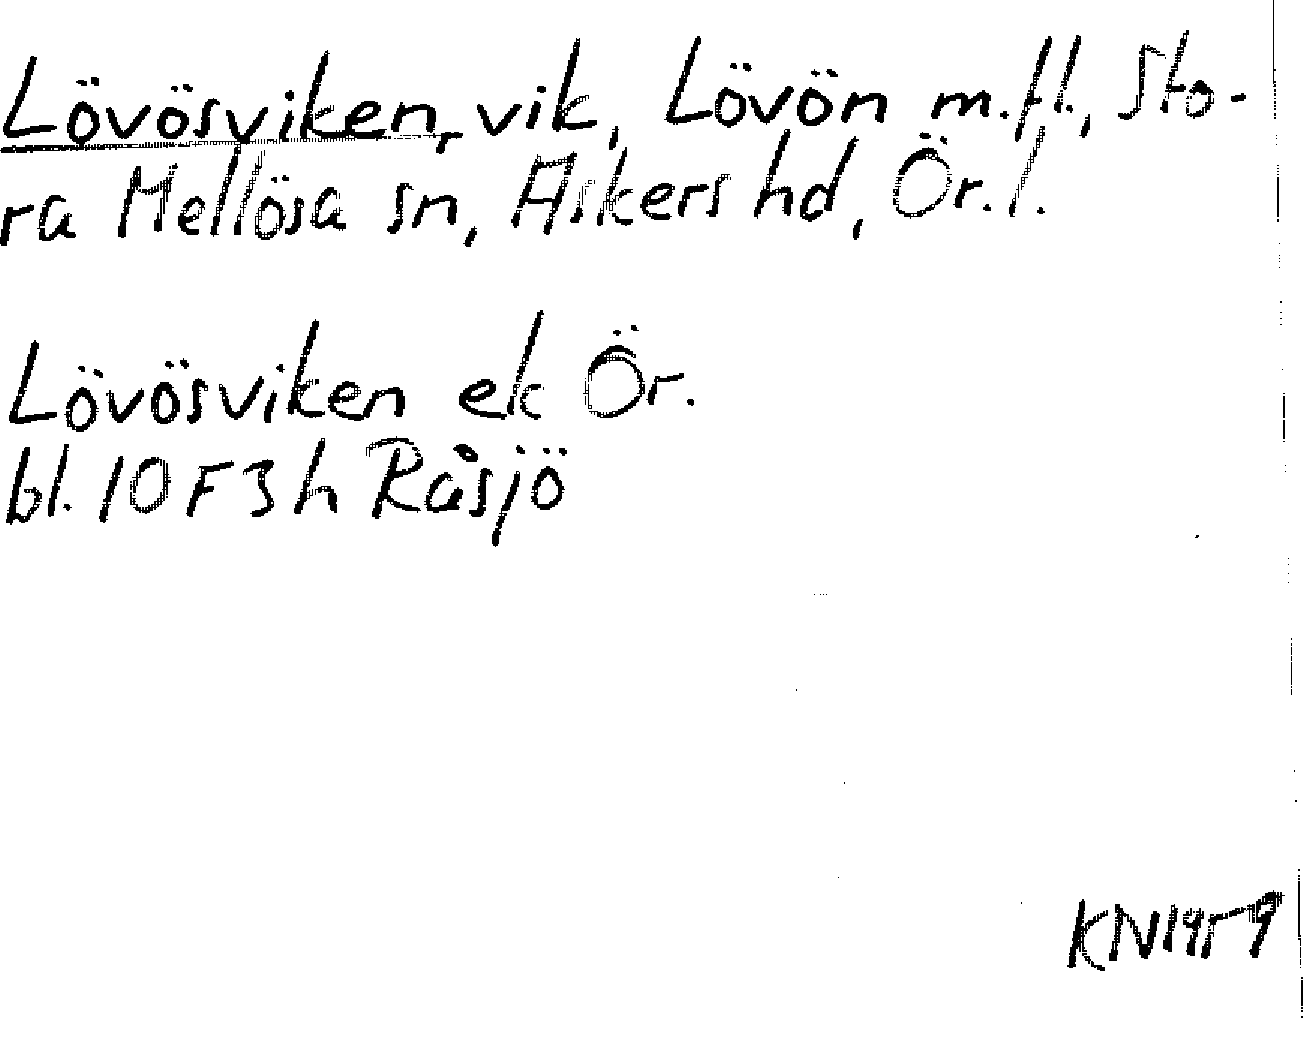 Lövösviken, vik, Lövön m.fl., Sto-
ra Mellösa sn, Askers hd, Ör.l.
Lövösviken ek Ör.
bl. 10F3h Råsjö
KN1959